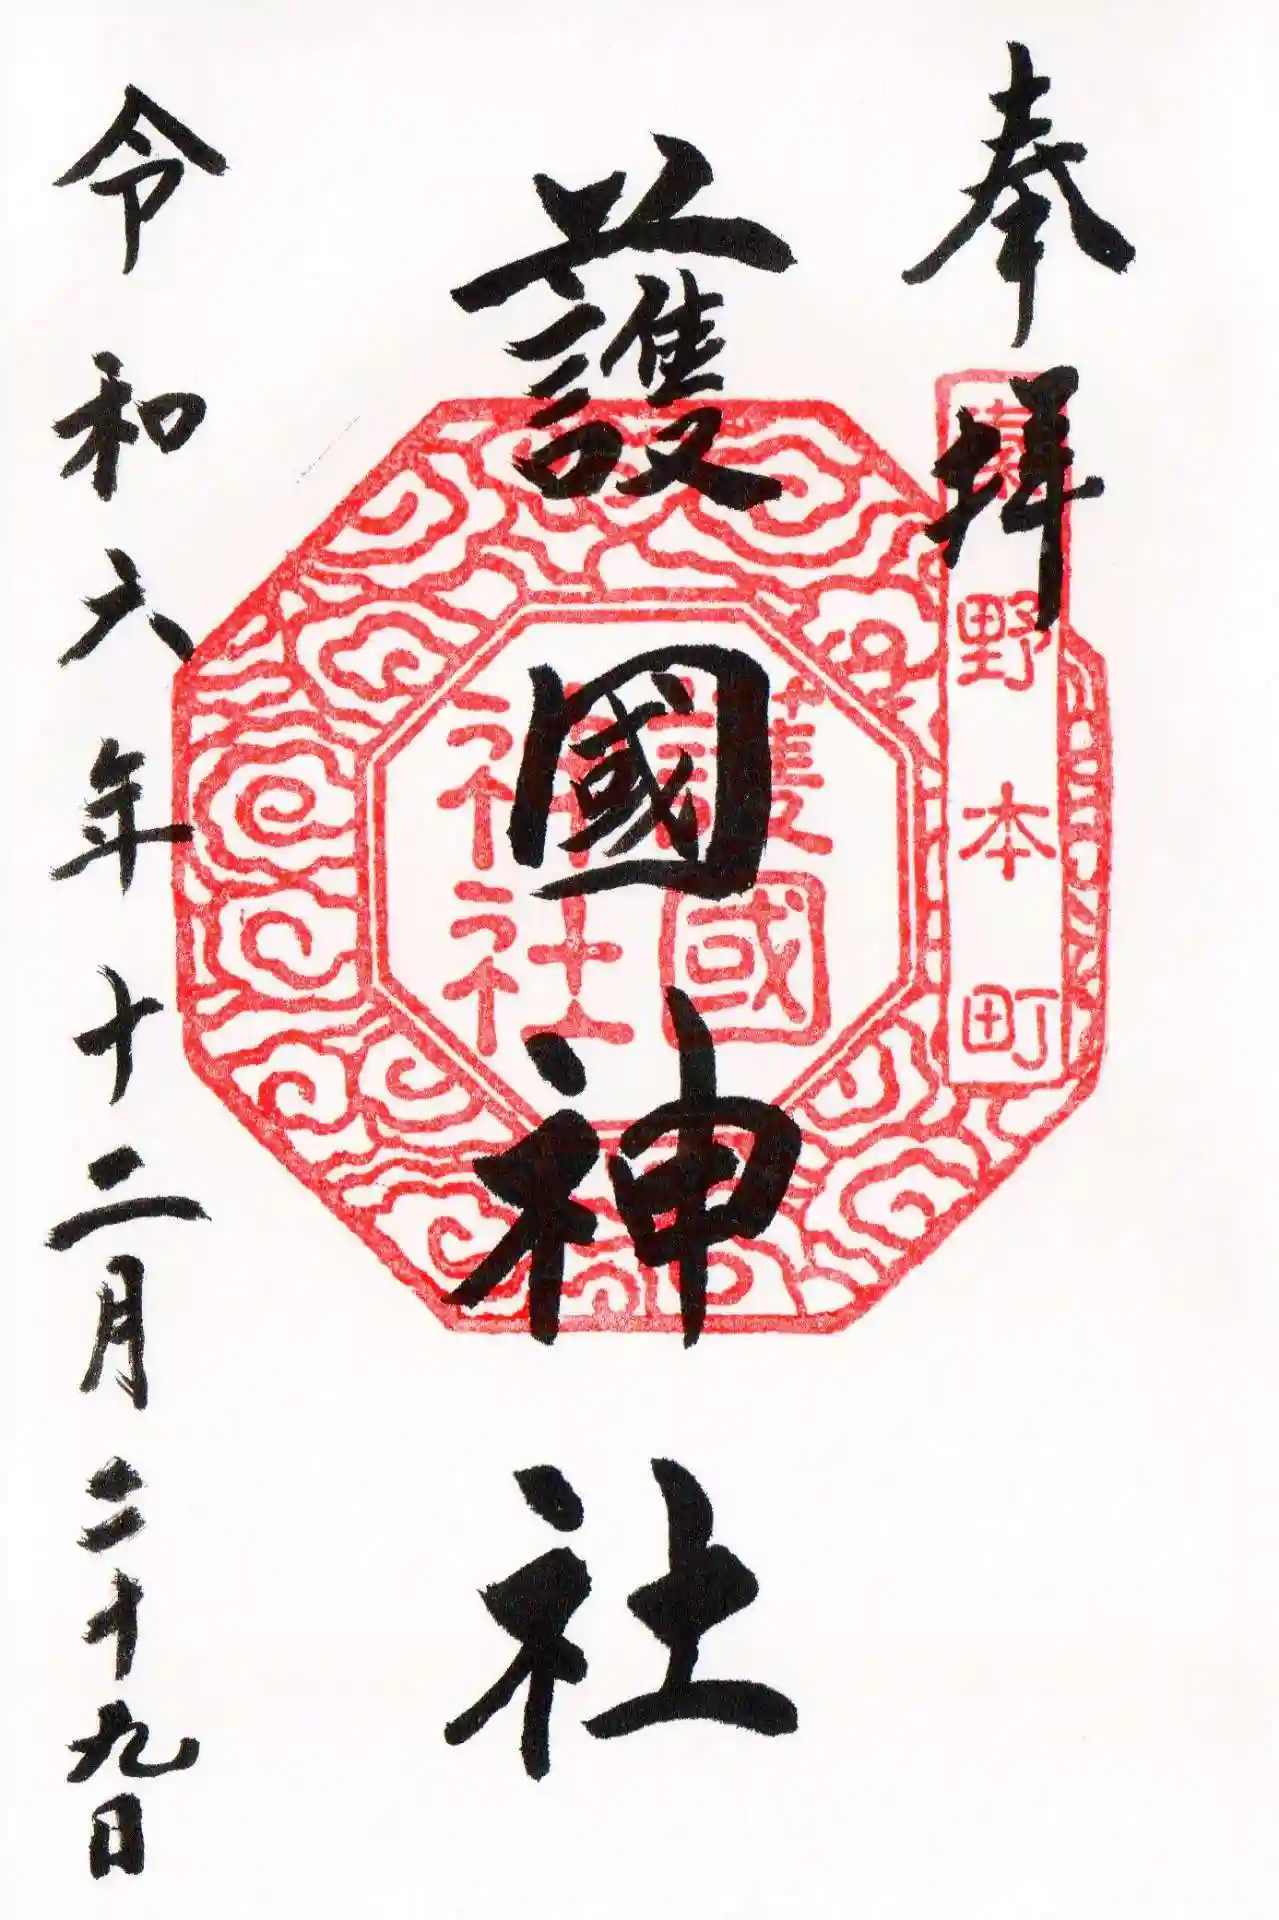 奉拝
野本町
護國神社
護國
神社
令和六年十二月二十九日